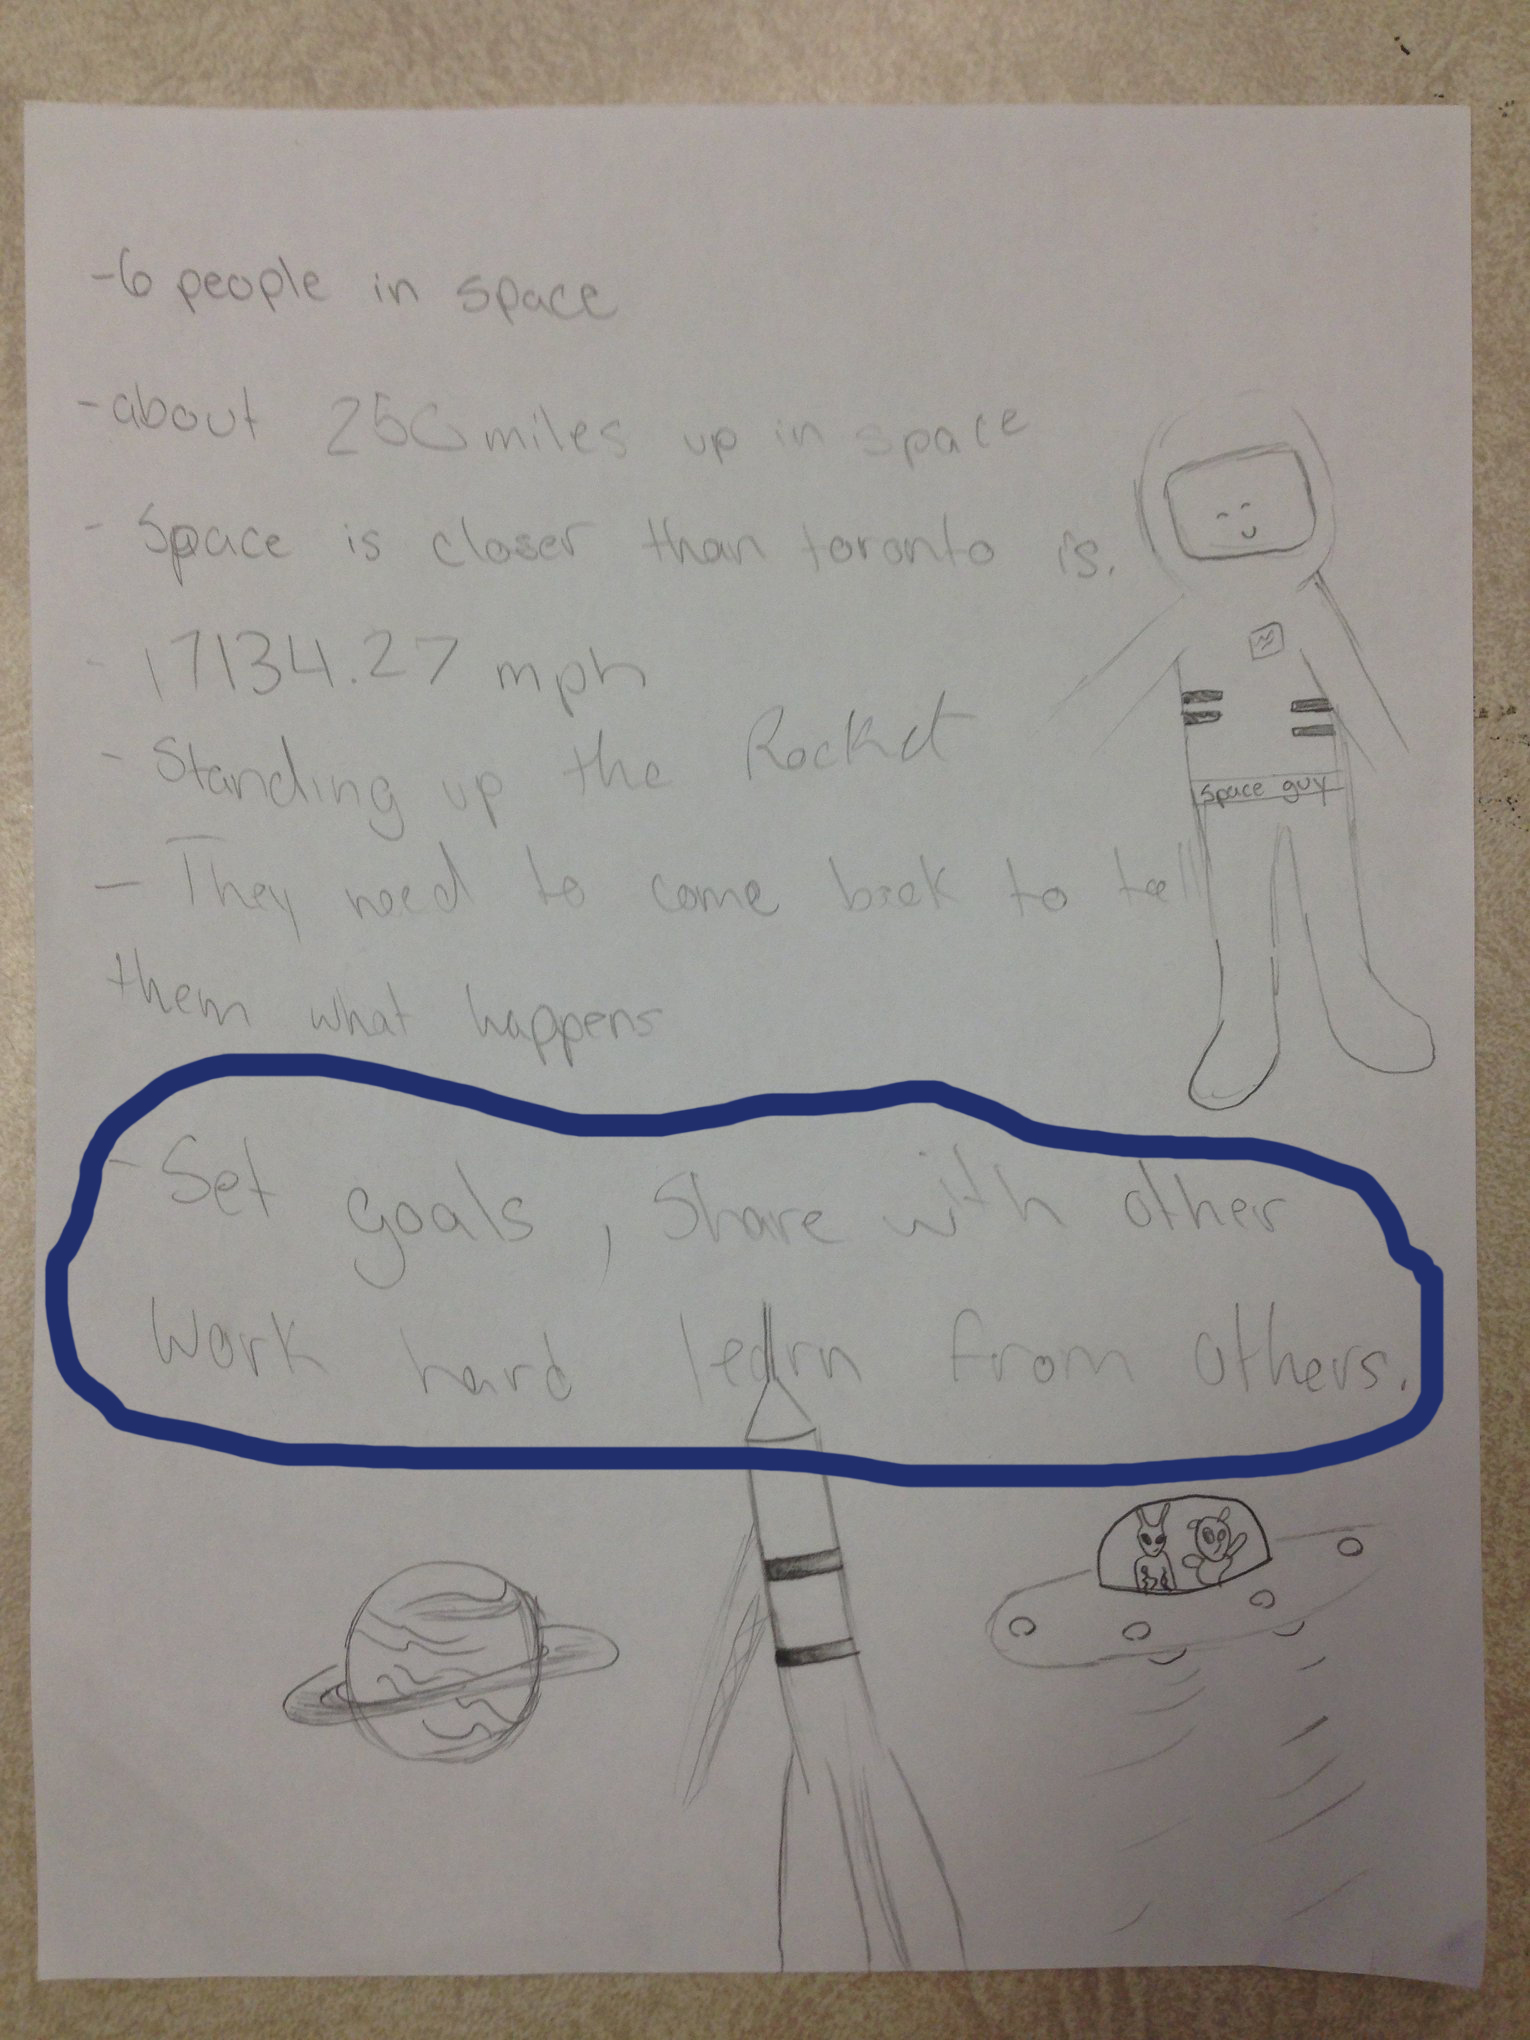 -6 people in space
-about 250 miles up in space
- Space is closer than toronto is.
- 17134.27 mph
- Standing up the Rocket
- They need to come back to tell
them what happens
- Set goals, Share with other
Work hard learn from others.
Space guy